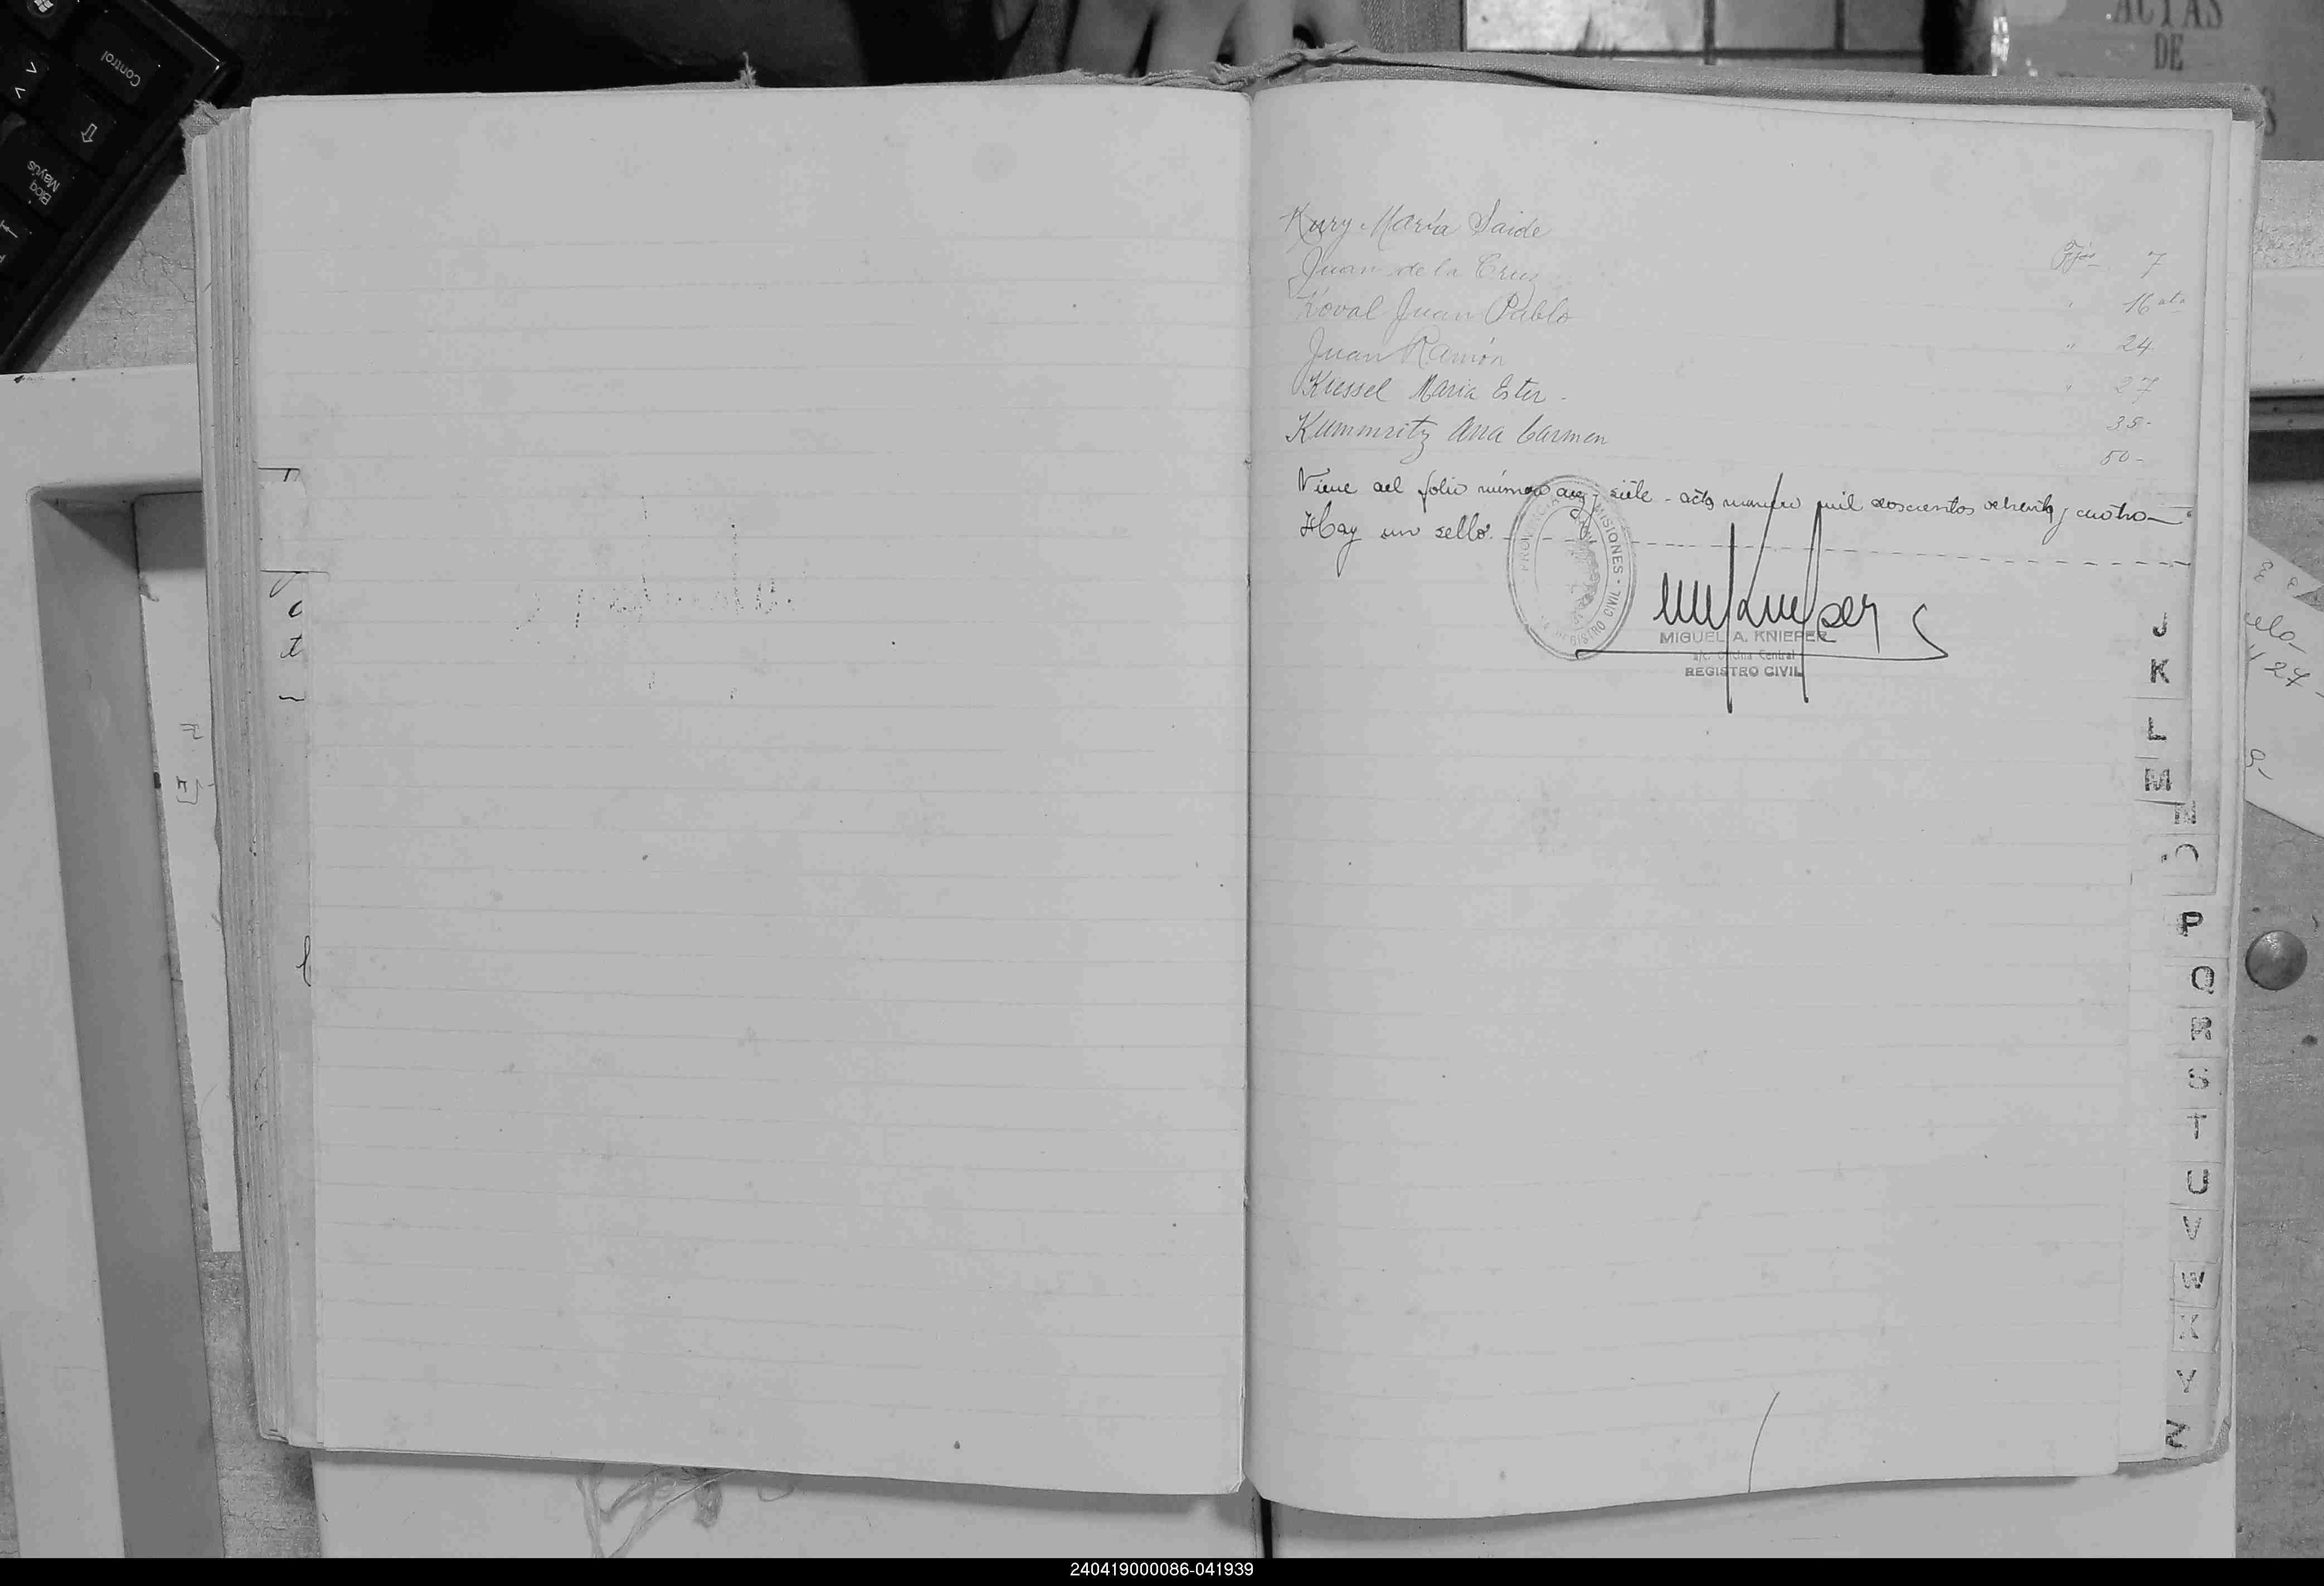 Control
Bloq
Mayús
ACTAS
DE
Kury María Saide Fjs 7
Juan de la Cruz " 16
Koval Juan Pablo " 24
Juan Ramón " 27
Kressel Maria Ester - 38-
Kummritz Ana Carmen 50-
Viene del folio número siete - acta numero mil doscientos ochenta y cuatro
Hay un sello.
MISIONES - REGISTRO CIVIL
MIGUEL A. KNIEPER
a/c. Oficina Central
REGISTRO CIVIL
J
K
L
M
N
O
P
Q
R
S
T
U
V
W
X
Y
Z
240419000086-041939